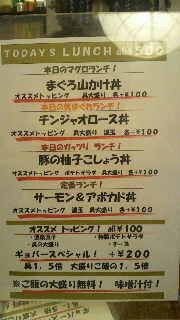 TODAY'S LUNCH all¥500
本日のマグロランチ！
まぐろ山かけ丼
オススメトッピング 具大盛り 温玉 各+¥100
本日の気まぐれランチ！
チンジャオロース丼
オススメトッピング 具大盛り 温玉 各+¥100
本日のガッツリ ランチ！
豚の柚子こしょう丼
オススメトッピング ポテトサラダ 具大盛り 各+¥100
定番ランチ！
サーモン&アボカド丼
オススメトッピング 温玉 具大盛り 各+¥100
オススメ トッピング！ all¥100
・温泉玉子 ・特製ポテトサラダ
・具の大盛り ・チーズ
ギョバースペシャル！ +¥200
具1.5倍 大盛りご飯の1.5倍
※ご飯の大盛り無料！ 味噌汁付！